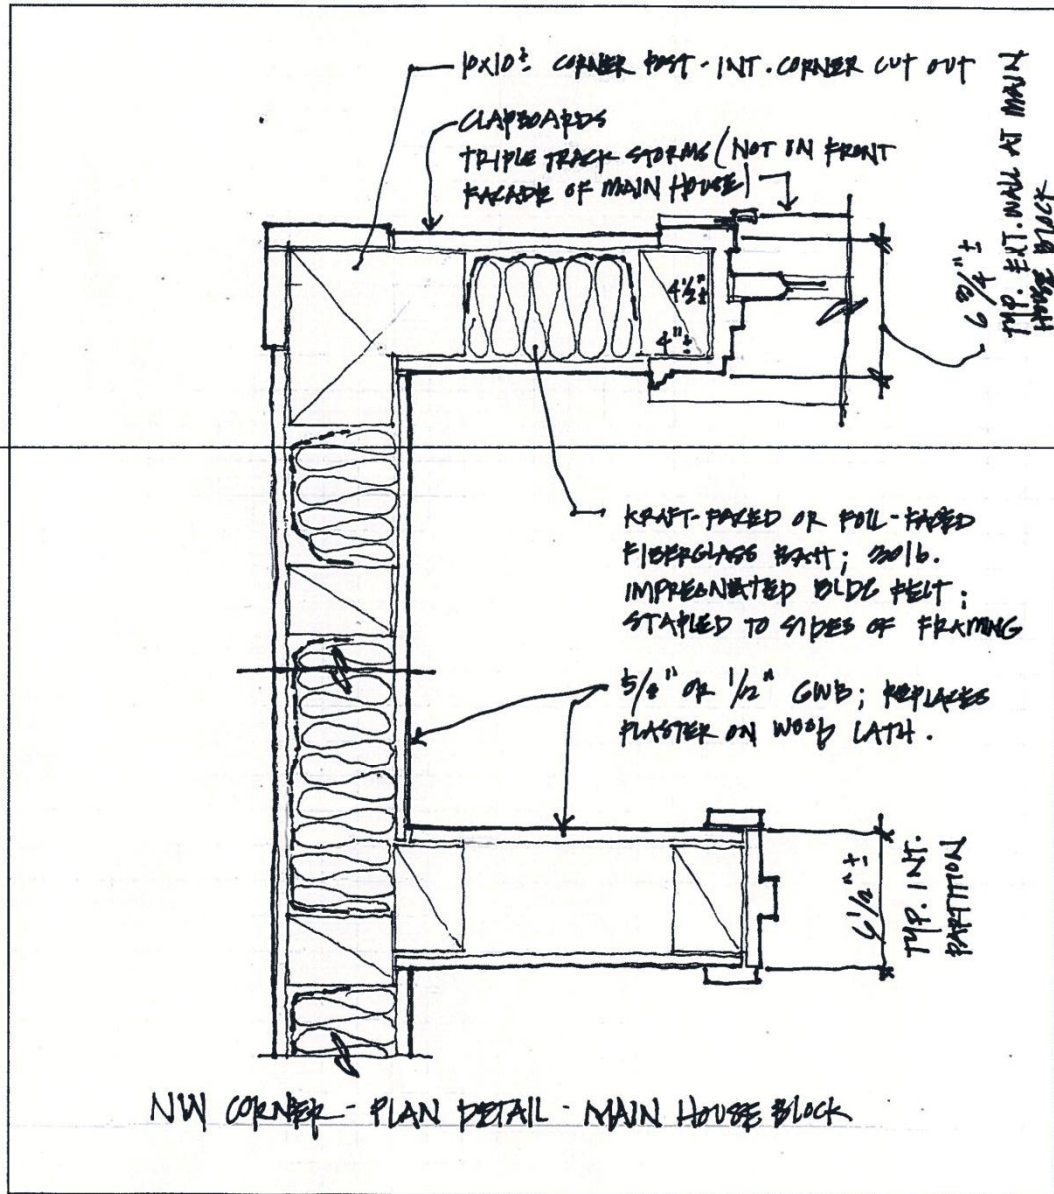 10X10± CORNER POST - INT. CORNER CUT OUT
CLAPBOARDS
TRIPLE TRACK STORMS (NOT ON FRONT
FACADE OF MAIN HOUSE)
6 3/4" ±
TYP. EXT. WALL AT MAIN
HOUSE BLOCK
4 1/2" ±
4" ±
KRAFT-FACED OR FOIL-FACED
FIBERGLASS BATT; 30 lb.
IMPREGNATED BLDG FELT;
STAPLED TO SIDES OF FRAMING
5/8" OR 1/2" GWB; REPLACES
PLASTER ON WOOD LATH.
6 1/2" ±
TYP. INT.
PARTITION
NW CORNER - PLAN DETAIL - MAIN HOUSE BLOCK